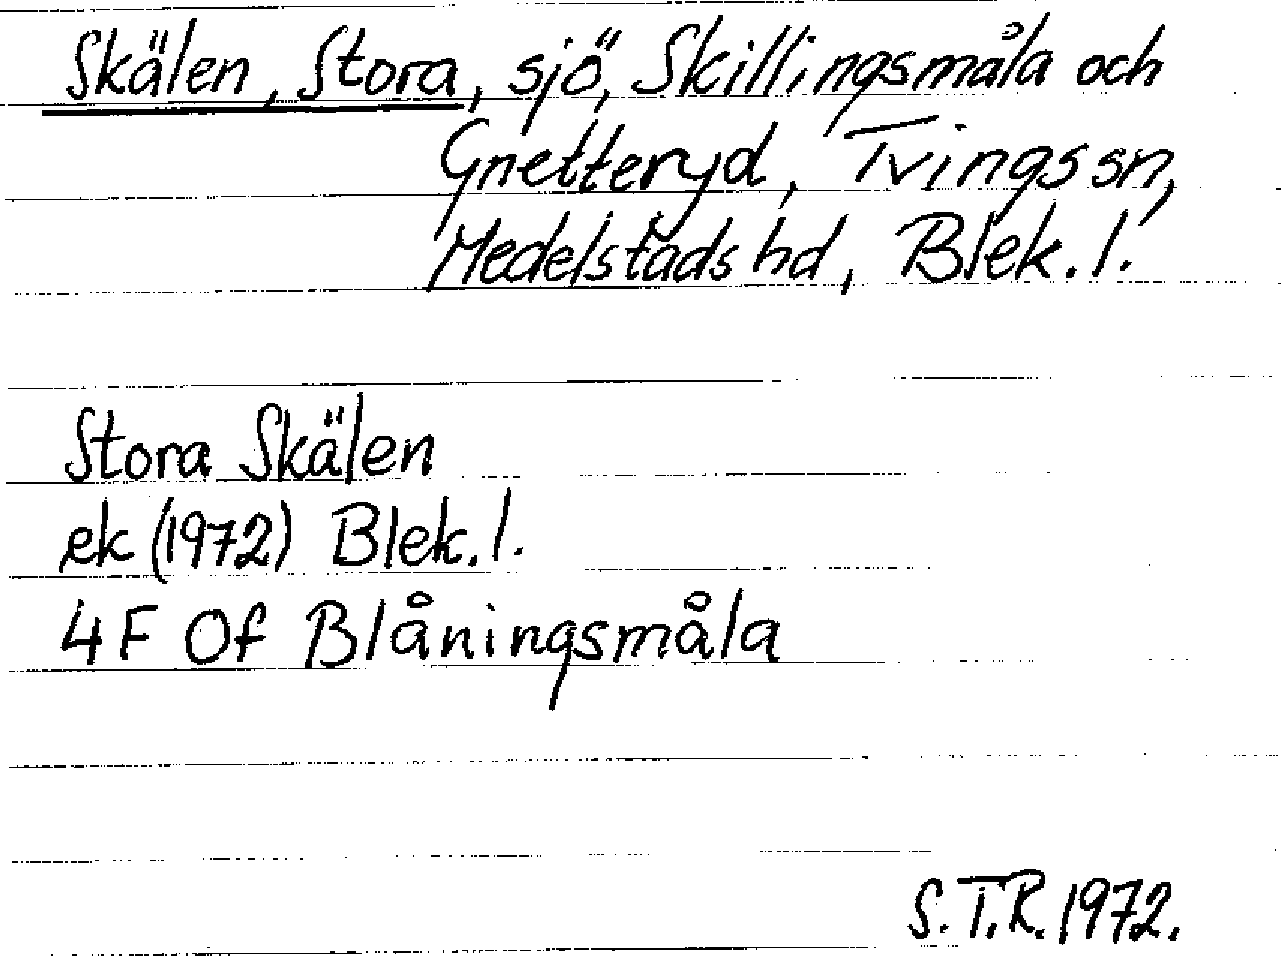 Skälen, Stora, sjö, Skillingsmåla och
Gnetteryd, Tvings sn,
Medelstads hd, Blek. l.
Stora Skälen
ek (1972) Blek. l.
4F Of Blåningsmåla
S.T.R. 1972.